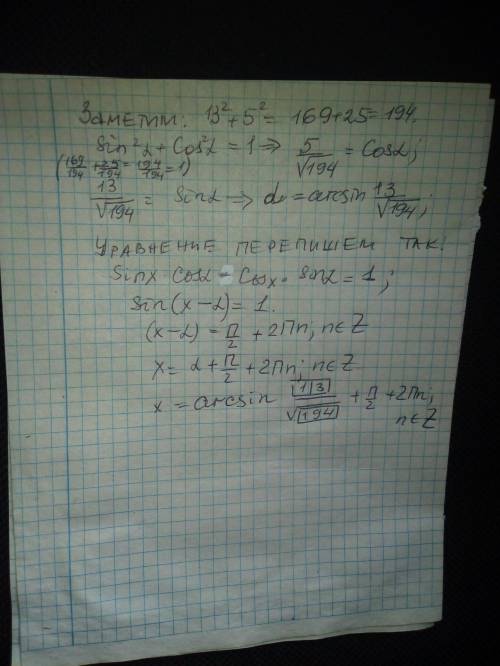 Заметим: 13² + 5² = 169 + 25 = 194.
sin²α + cos²α = 1 ⇒ 5/√194 = cosα;
(169/194 + 25/194 = 194/194 = 1)
13/√194 = sinα ⇒ α = arcsin 13/√194;
Уравнение перепишем так:
sinx cosα - cosx · sinα = 1;
sin(x-α) = 1.
(x-α) = П/2 + 2Пn; n∈Z
x = α + П/2 + 2Пn; n∈Z
x = arcsin 13/√194 + П/2 + 2Пn;
n∈Z